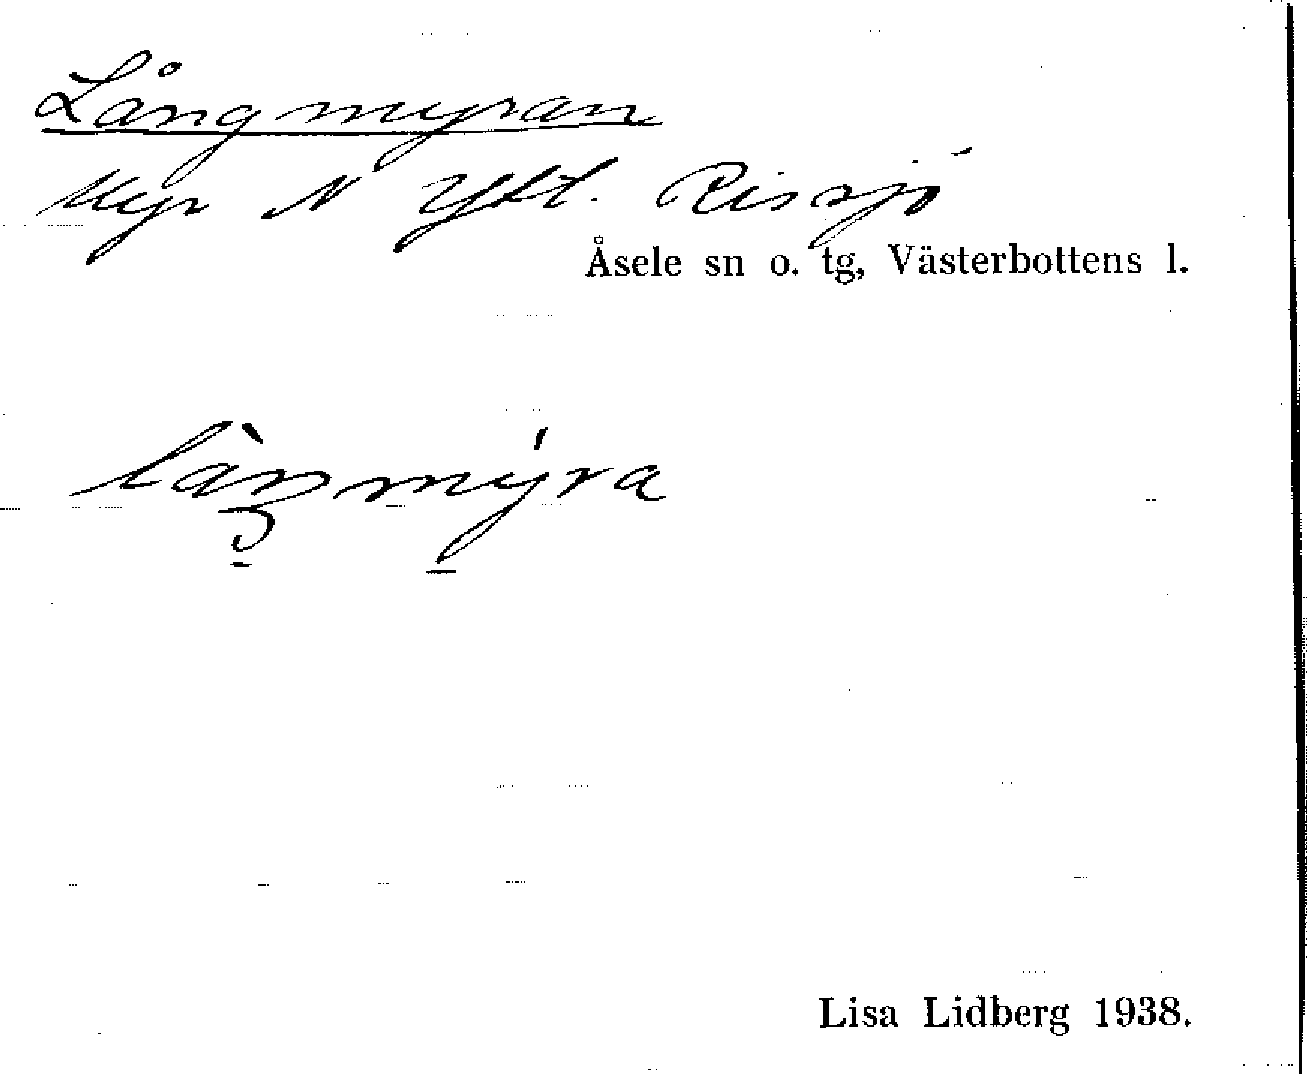 Långmyran
Myr N Ytt. Rissjö
Åsele sn o. tg, Västerbottens l.
Lisa Lidberg 1938.